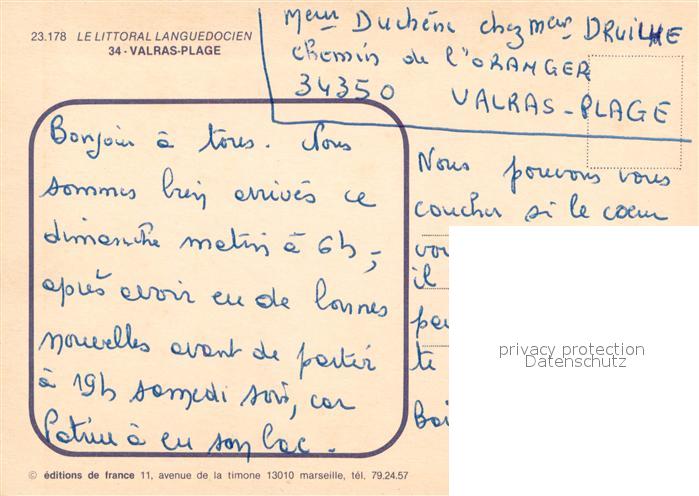 23.178 LE LITTORAL LANGUEDOCIEN
34 - VALRAS-PLAGE
Meur Duchêne chez meur DRUILHE
chemin de l'ORANGER
34350 VALRAS-PLAGE
Bonjour à tous. Nous
sommes bien arrivés ce
dimanche matin à 6h,
après avoir eu de bonnes
nouvelles avant de partir
à 19h samedi soir, car
à eu son bac.
Nous pouvons vous
coucher si le coeur
il
te
privacy protection
Datenschutz
© éditions de france 11, avenue de la timone 13010 marseille, tél. 79.24.57